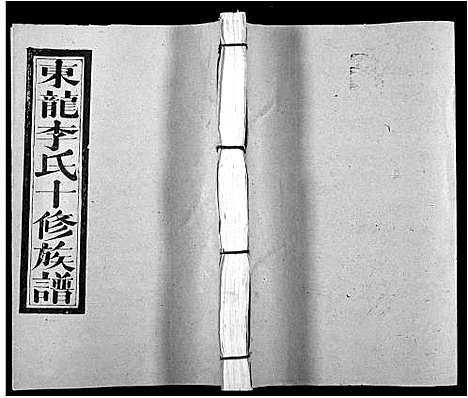 東龍李氏十修族譜